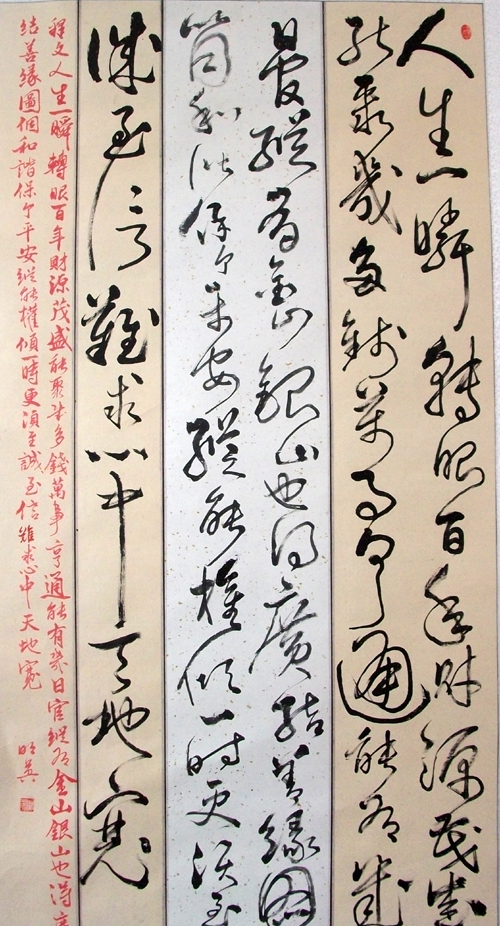 人生一瞬轉眼百年財源茂盛
能聚幾多錢萬事亨通能有幾
日官縱有金山銀山也得廣結善緣圖
箇和諧保个平安縱能權傾一時更須至
誠至信難求心中天地寬
釋文人生一瞬轉眼百年財源茂盛能聚幾多錢萬事亨通能有幾日官縱有金山銀山也得廣
結善緣圖個和諧保个平安縱能權傾一時更須至誠至信難求心中天地寬